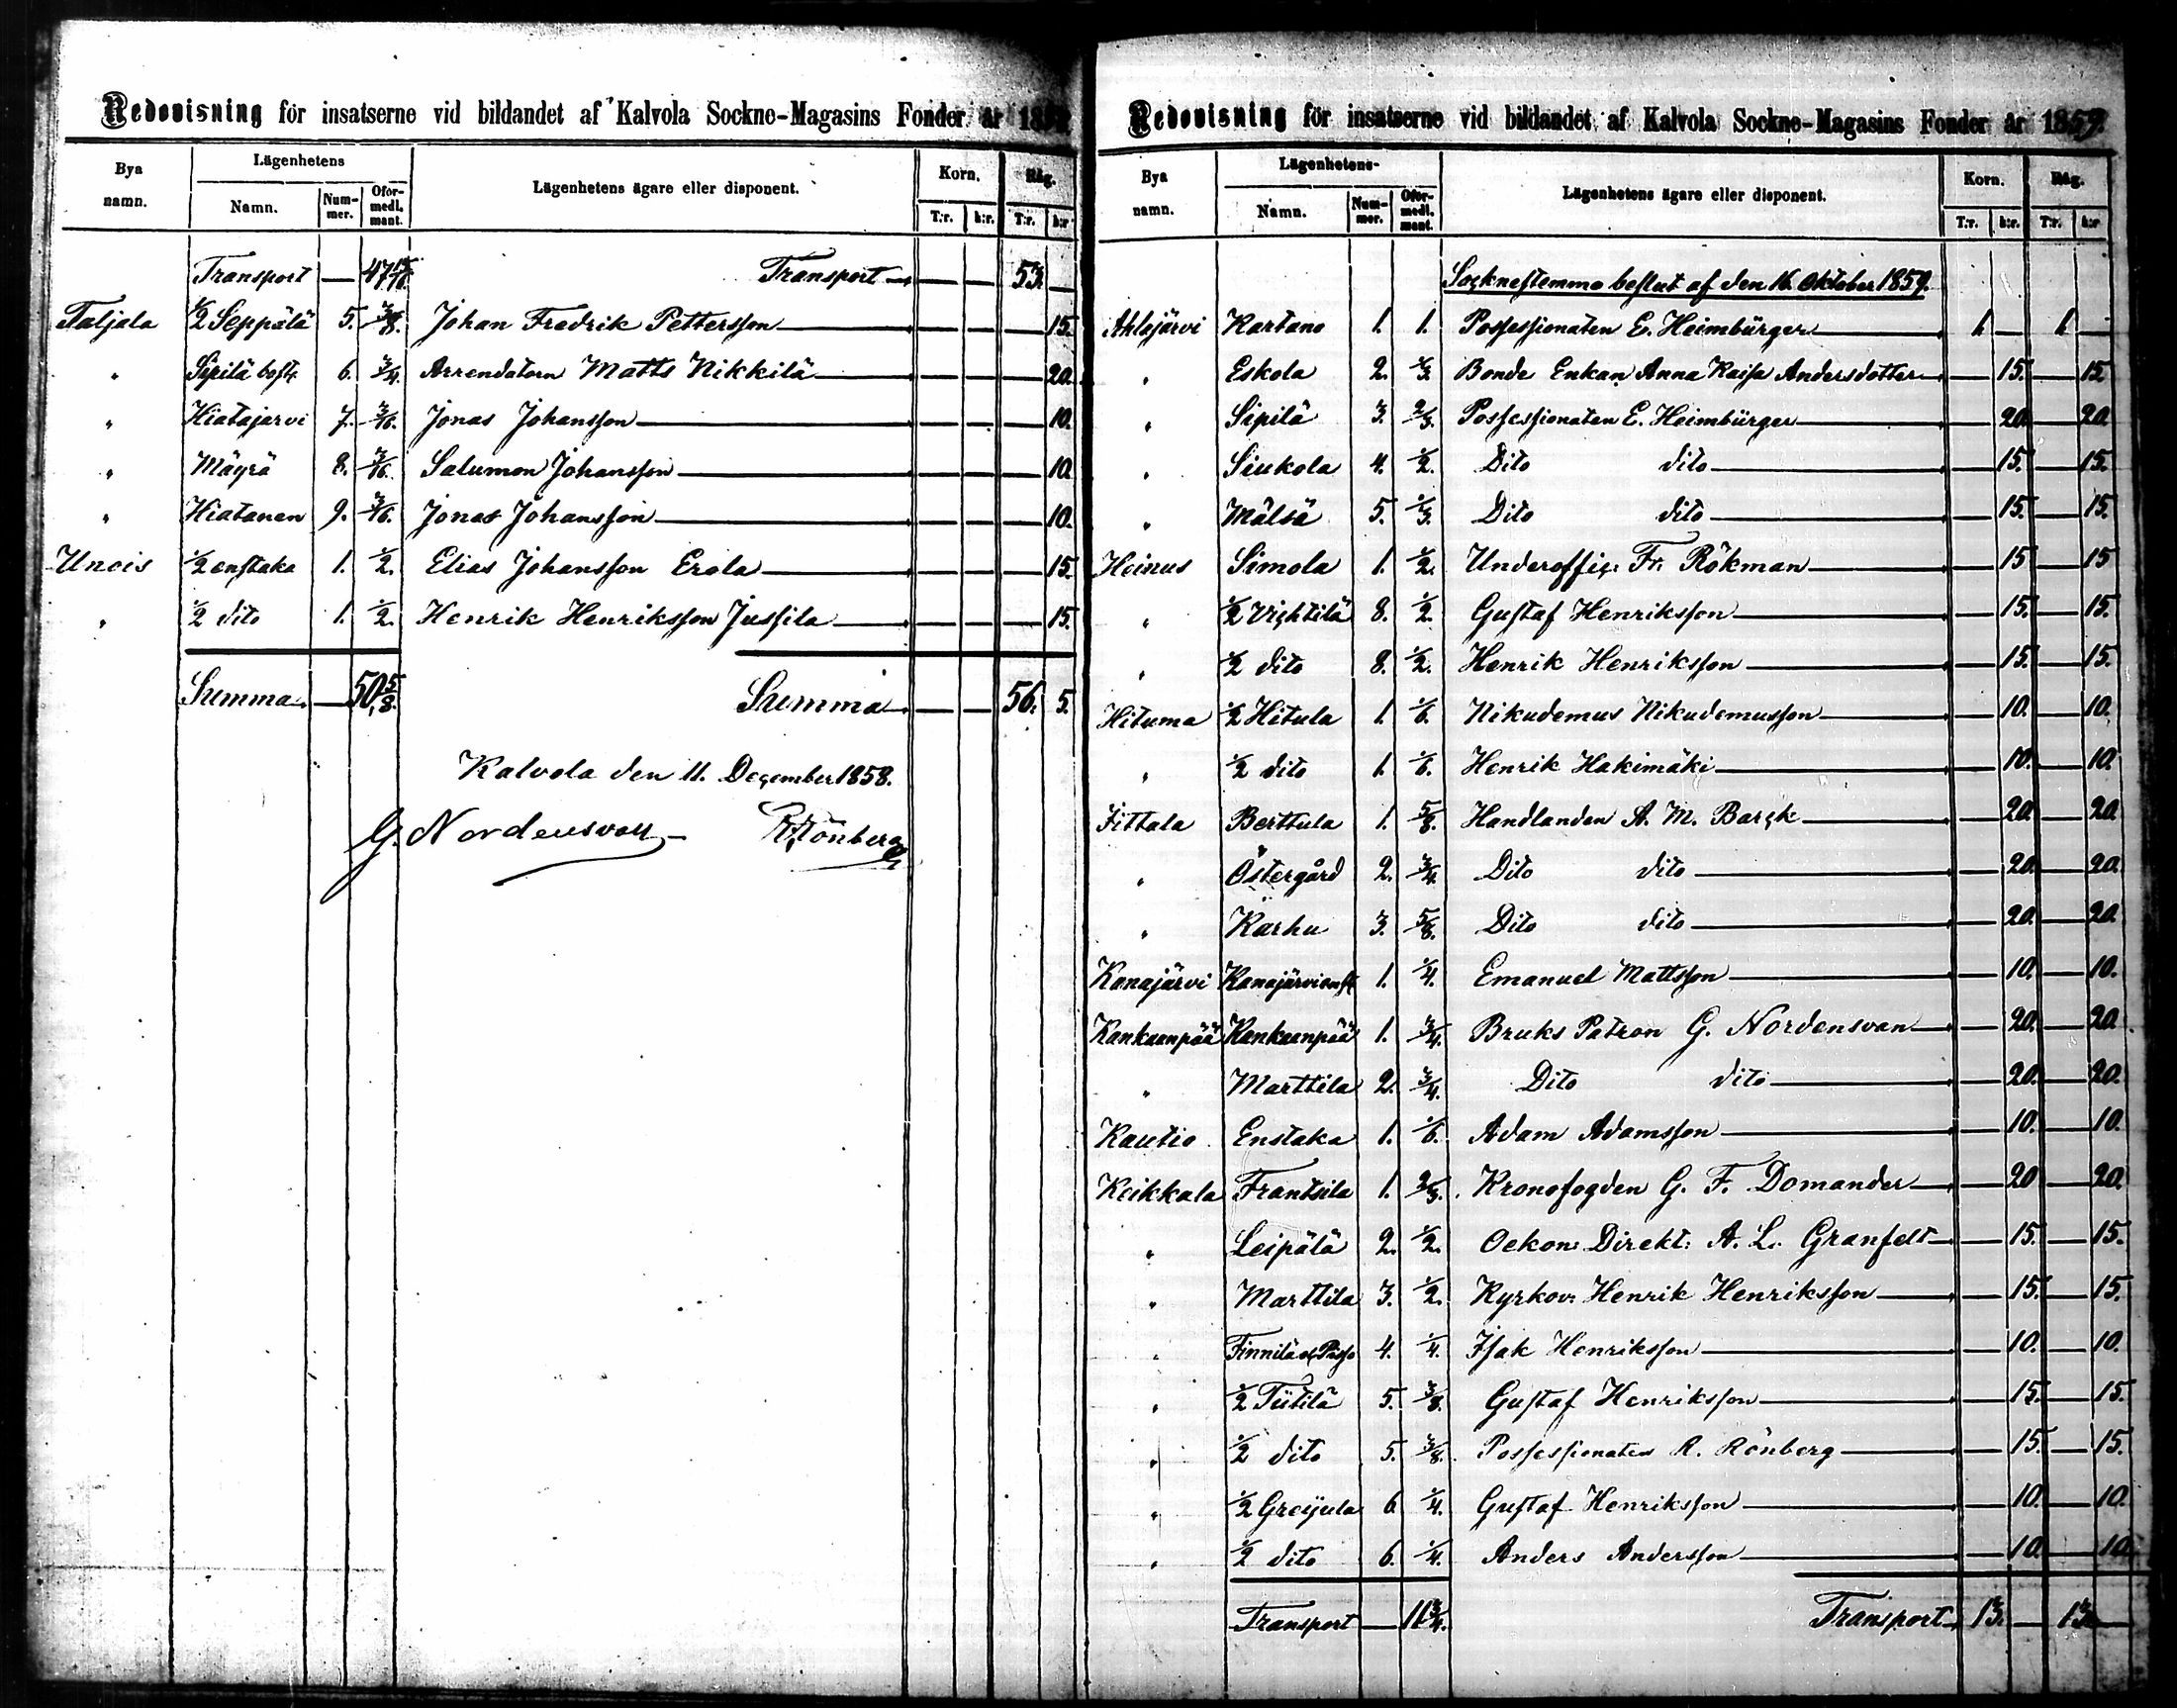 Redovisning för insatserne vid bildandet af Kalvola Sockne-Magasins Fonder år 185
Bya namn. Lägenhetens Namn. Num-mer. Oför-medl. mant. Lägenhetens ägare eller disponent. Korn. T:r. k:r. Råg. T:r. k:r
Transport — 47 15/16. Transport — — — 53. —
Taljala 1/2 Seppälä 5. 3/8. Johan Fredrik Pettersson — — — 15.
" Sipilä 6. 3/4. Arrendatorn Matts Nikkilä — — — 20.
" Hiatajarvi 7. 3/16. Jonas Johansson — — — 10.
" Mäyrä 8. 3/16. Salumon Johansson — — — 10.
" Hiatanen 9. 3/16. Jonas Johansson — — — 10.
Unois 1/2 enstaka 1. 1/2. Elias Johansson Erola — — — 15.
" 1/2 dito 1. 1/2. Henrik Henriksson Jussila — — — 15.
Summa — 50 5/8. Summa — — 56. 5.
Kalvola den 11. December 1858.
G. Nordensvan R. Rönberg
Redovisning för insatserne vid bildandet af Kalvola Sockne-Magasins Fonder år 1859.
Bya namn. Lägenhetens- Namn. Num-mer. Oför-medl. mant. Lägenhetens ägare eller disponent. Korn. T:r. k:r. Råg. T:r. k:r
Socknestemmo beslut af den 16. Oktober 1859.
Ahlajärvi Kartano 1. 1. Possessionaten E. Heimbürger 1. — 1. —
" Eskola 2. 1/3. Bonde Enkan Anna Kaisa Andersdotter — 15. — 15.
" Sipilä 3. 2/3. Possessionaten E. Heimbürger — 20. — 20.
" Siukola 4. 1/2. Dito dito — 15. — 15.
" Mälsä 5. 1/3. Dito dito — 15. — 15.
Heinus Simola 1. 1/2. Underoffic: Fr. Rökman — 15 — 15
" 1/2 Vichtilä 8. 1/2. Gustaf Henriksson — 15. — 15.
" 1/2 dito 8. 1/2. Henrik Henriksson — 15. — 15.
Hituma 1/2 Hitula 1. 1/6. Nikudemus Nikudemusson — 10. — 10.
" 1/2 dito 1. 1/6. Henrik Hakimäki — 10. — 10.
Jittala Berttula 1. 5/8. Handlanden A. M. Barck — 20. — 20.
" Östergård 2. 3/4. Dito dito — 20. — 20.
" Karhu 3. 5/8. Dito dito — 20. — 20.
Kanajärvi Kanajärvi 1. 1/4. Emanuel Mattsson — 10. — 10.
Kankaanpää Kankaanpää 1. 3/4. Bruks Patron G. Nordensvan — 20. — 20.
" Marttila 2. 3/4. Dito dito — 20. — 20.
Kautio Enstaka 1. 1/6. Adam Adamsson — 10. — 10.
Keikkala Frantsila 1. 2/3. Kronofogden G. F. Domander — 20 — 20.
" Leipälä 2. 1/2. Oekon: Direkt: A. L. Granfelt — 15. — 15.
" Marttila 3. 1/2. Kyrkov: Henrik Henriksson — 15. — 15.
" Finnilä 4. 1/4. Isak Henriksson — 10. — 10.
" 1/2 Tiitilä 5. 3/8. Gustaf Henriksson — 15. — 15.
" 1/2 dito 5. 3/8. Possessionaten R. Rönberg — 15. — 15.
" 1/2 Greijula 6 1/4. Gustaf Henriksson — 10. — 10.
" 1/2 dito 6. 1/4. Anders Andersson — 10. — 10
Transport — 11 3/4. Transport 13. — 13. —